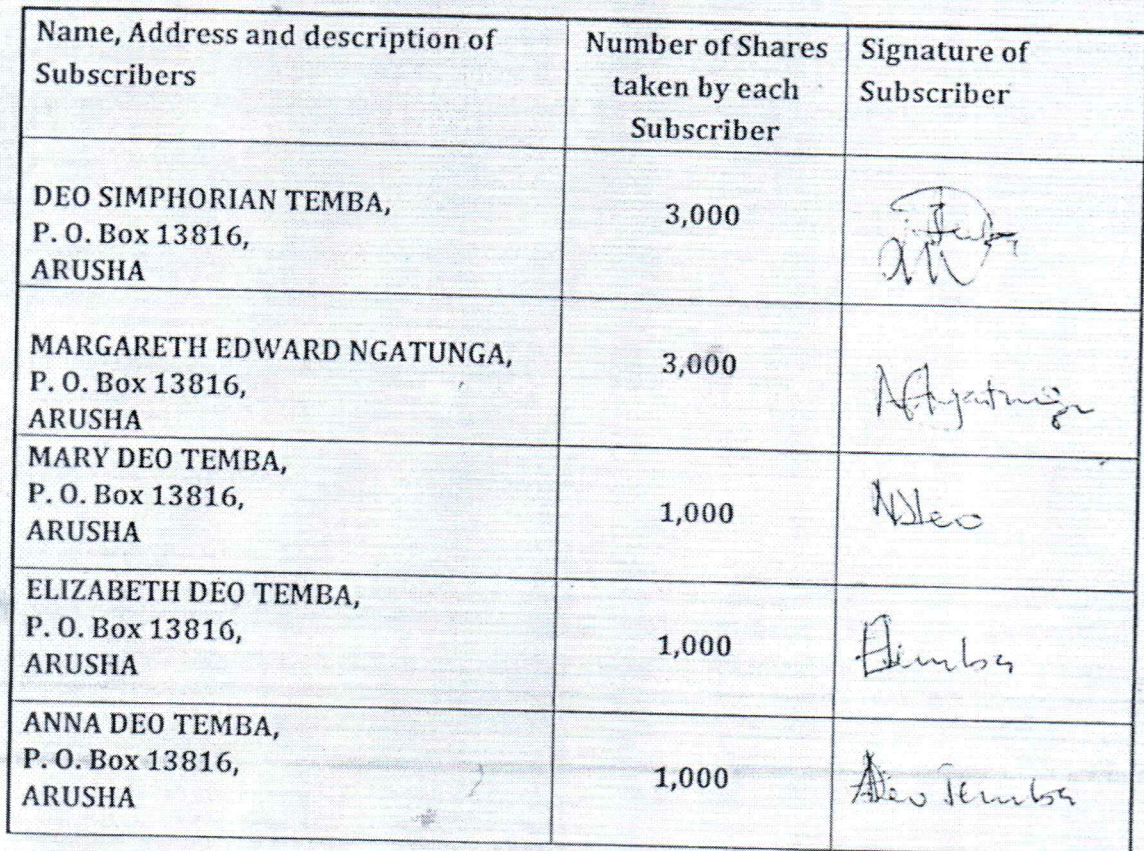 Name, Address and description of Subscribers
Number of Shares taken by each Subscriber
Signature of Subscriber
DEO SIMPHORIAN TEMBA,
P. O. Box 13816,
ARUSHA
3,000
MARGARETH EDWARD NGATUNGA,
P. O. Box 13816,
ARUSHA
3,000
MARY DEO TEMBA,
P. O. Box 13816,
ARUSHA
1,000
ELIZABETH DEO TEMBA,
P. O. Box 13816,
ARUSHA
1,000
ANNA DEO TEMBA,
P. O. Box 13816,
ARUSHA
1,000